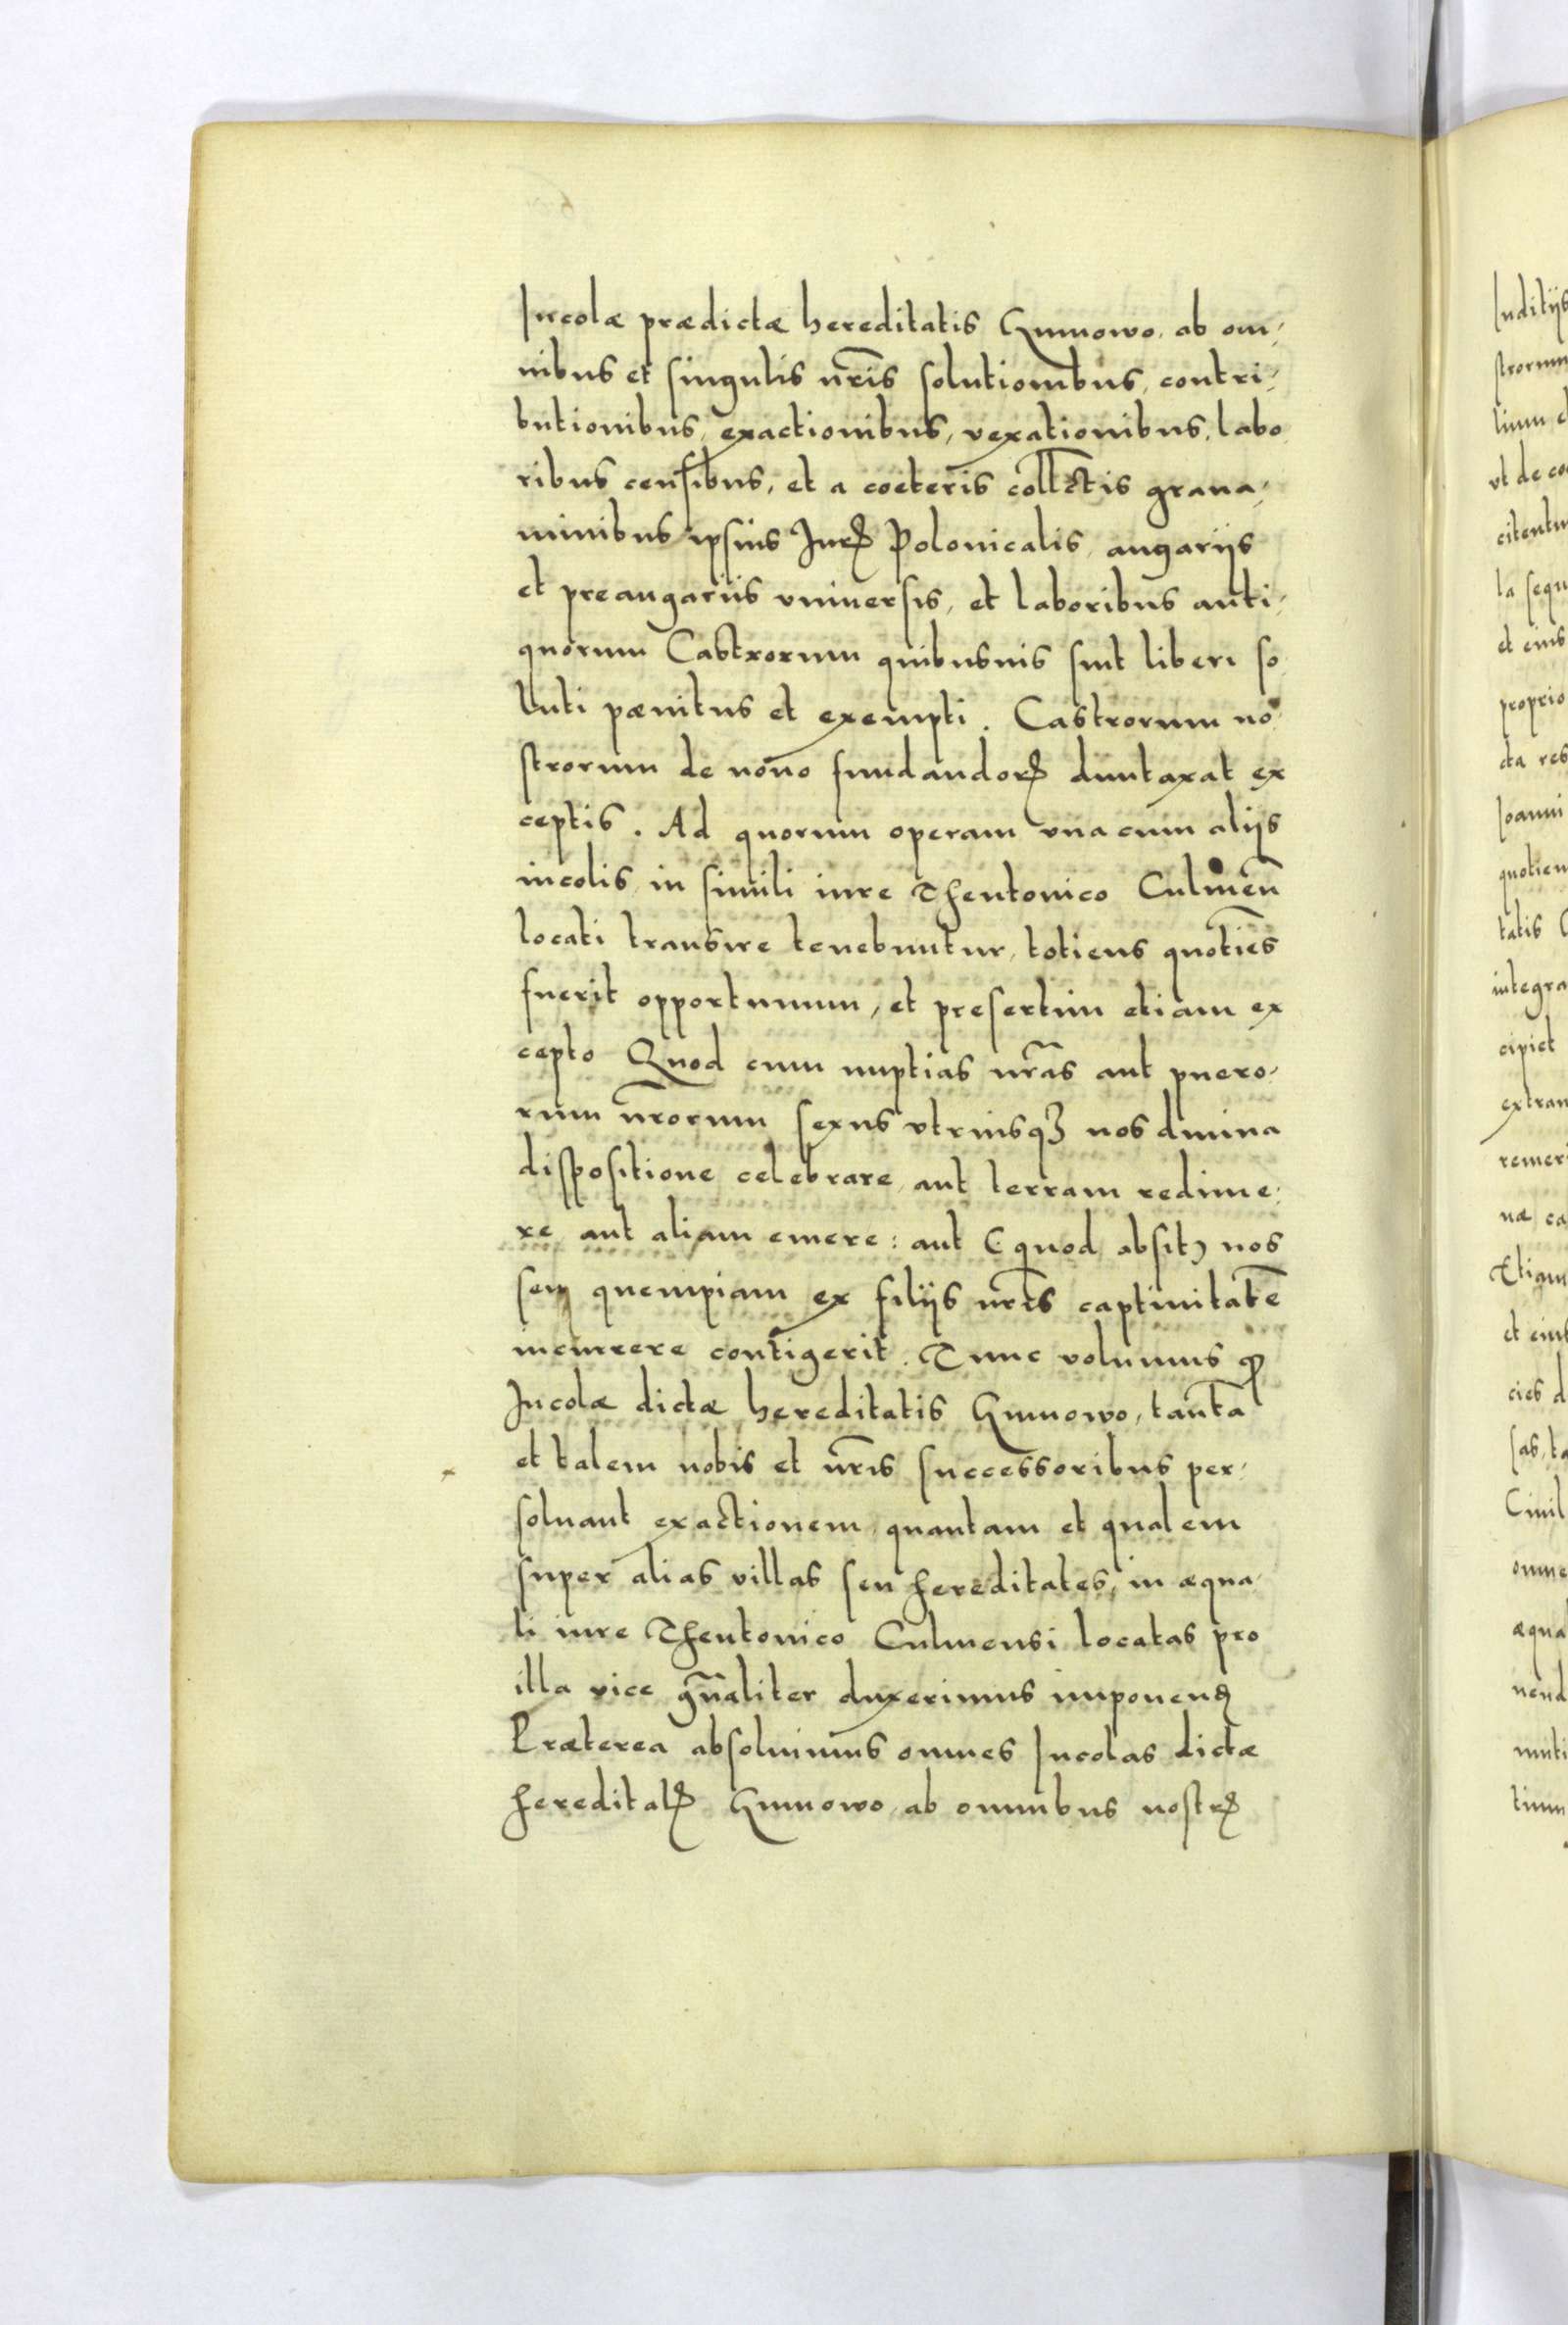 Incolæ prædictæ hereditatis Gumowo, ab om,
nibus et singulis nr̃is solutionibus, contri,
butionibus, exactionibus, vexationibus, labo
ribus censibus, et a coeteris coll̃ctis graua,
minibus ipsius Jurꝭ Polonicalis, angarijs
et preangariis vniuersis, et laboribus anti,
quorum Castrorum quibusuis sint liberi so
luti pænitus et exempti. Castrorum no
strorum de nouo fundandorꝭ duntaxat ex
ceptis. Ad quorum operam vna cum alijs
incolis in simili iure Theutonico Culmeñ
locati transire tenebuntur, totiens quoties̃
fuerit opportunum, et presertim etiam ex
cepto Quod cum nuptias nr̃as aut puero,
rum nr̃orum sexus vtriusqꝫ nos diuina
dispositione celebrare, aut terram redime,
re aut aliam emere: aut (quod absit) nos
seu quempiam ex filijs nr̃is captiuitatẽ
incurrere contigerit. Tunc volumus ꝙ
Incolæ dictæ hereditatis Gumowo, tantã
et talem nobis et nr̃is successoribus per,
soluant exactionem, quantam et qualem
super alias villas seu hereditates, in æqua,
li iure Theutonico Culmensi locatas pro
illa vice gñaliter duxerimus imponenꝭ
Præterea absoluimus omnes Incolas dictæ
hereditatꝭ Gumowo, ab omnibus nostrꝭ
Inditijs
strorum
ut de co
la sequ
et eius
proprio
cta res
Joanni
quotien
tatis
integra
cipiet
extran
remeri
næ ca
Etiam
cies d
sas, ta
Ciuil
omne
æqua
nend